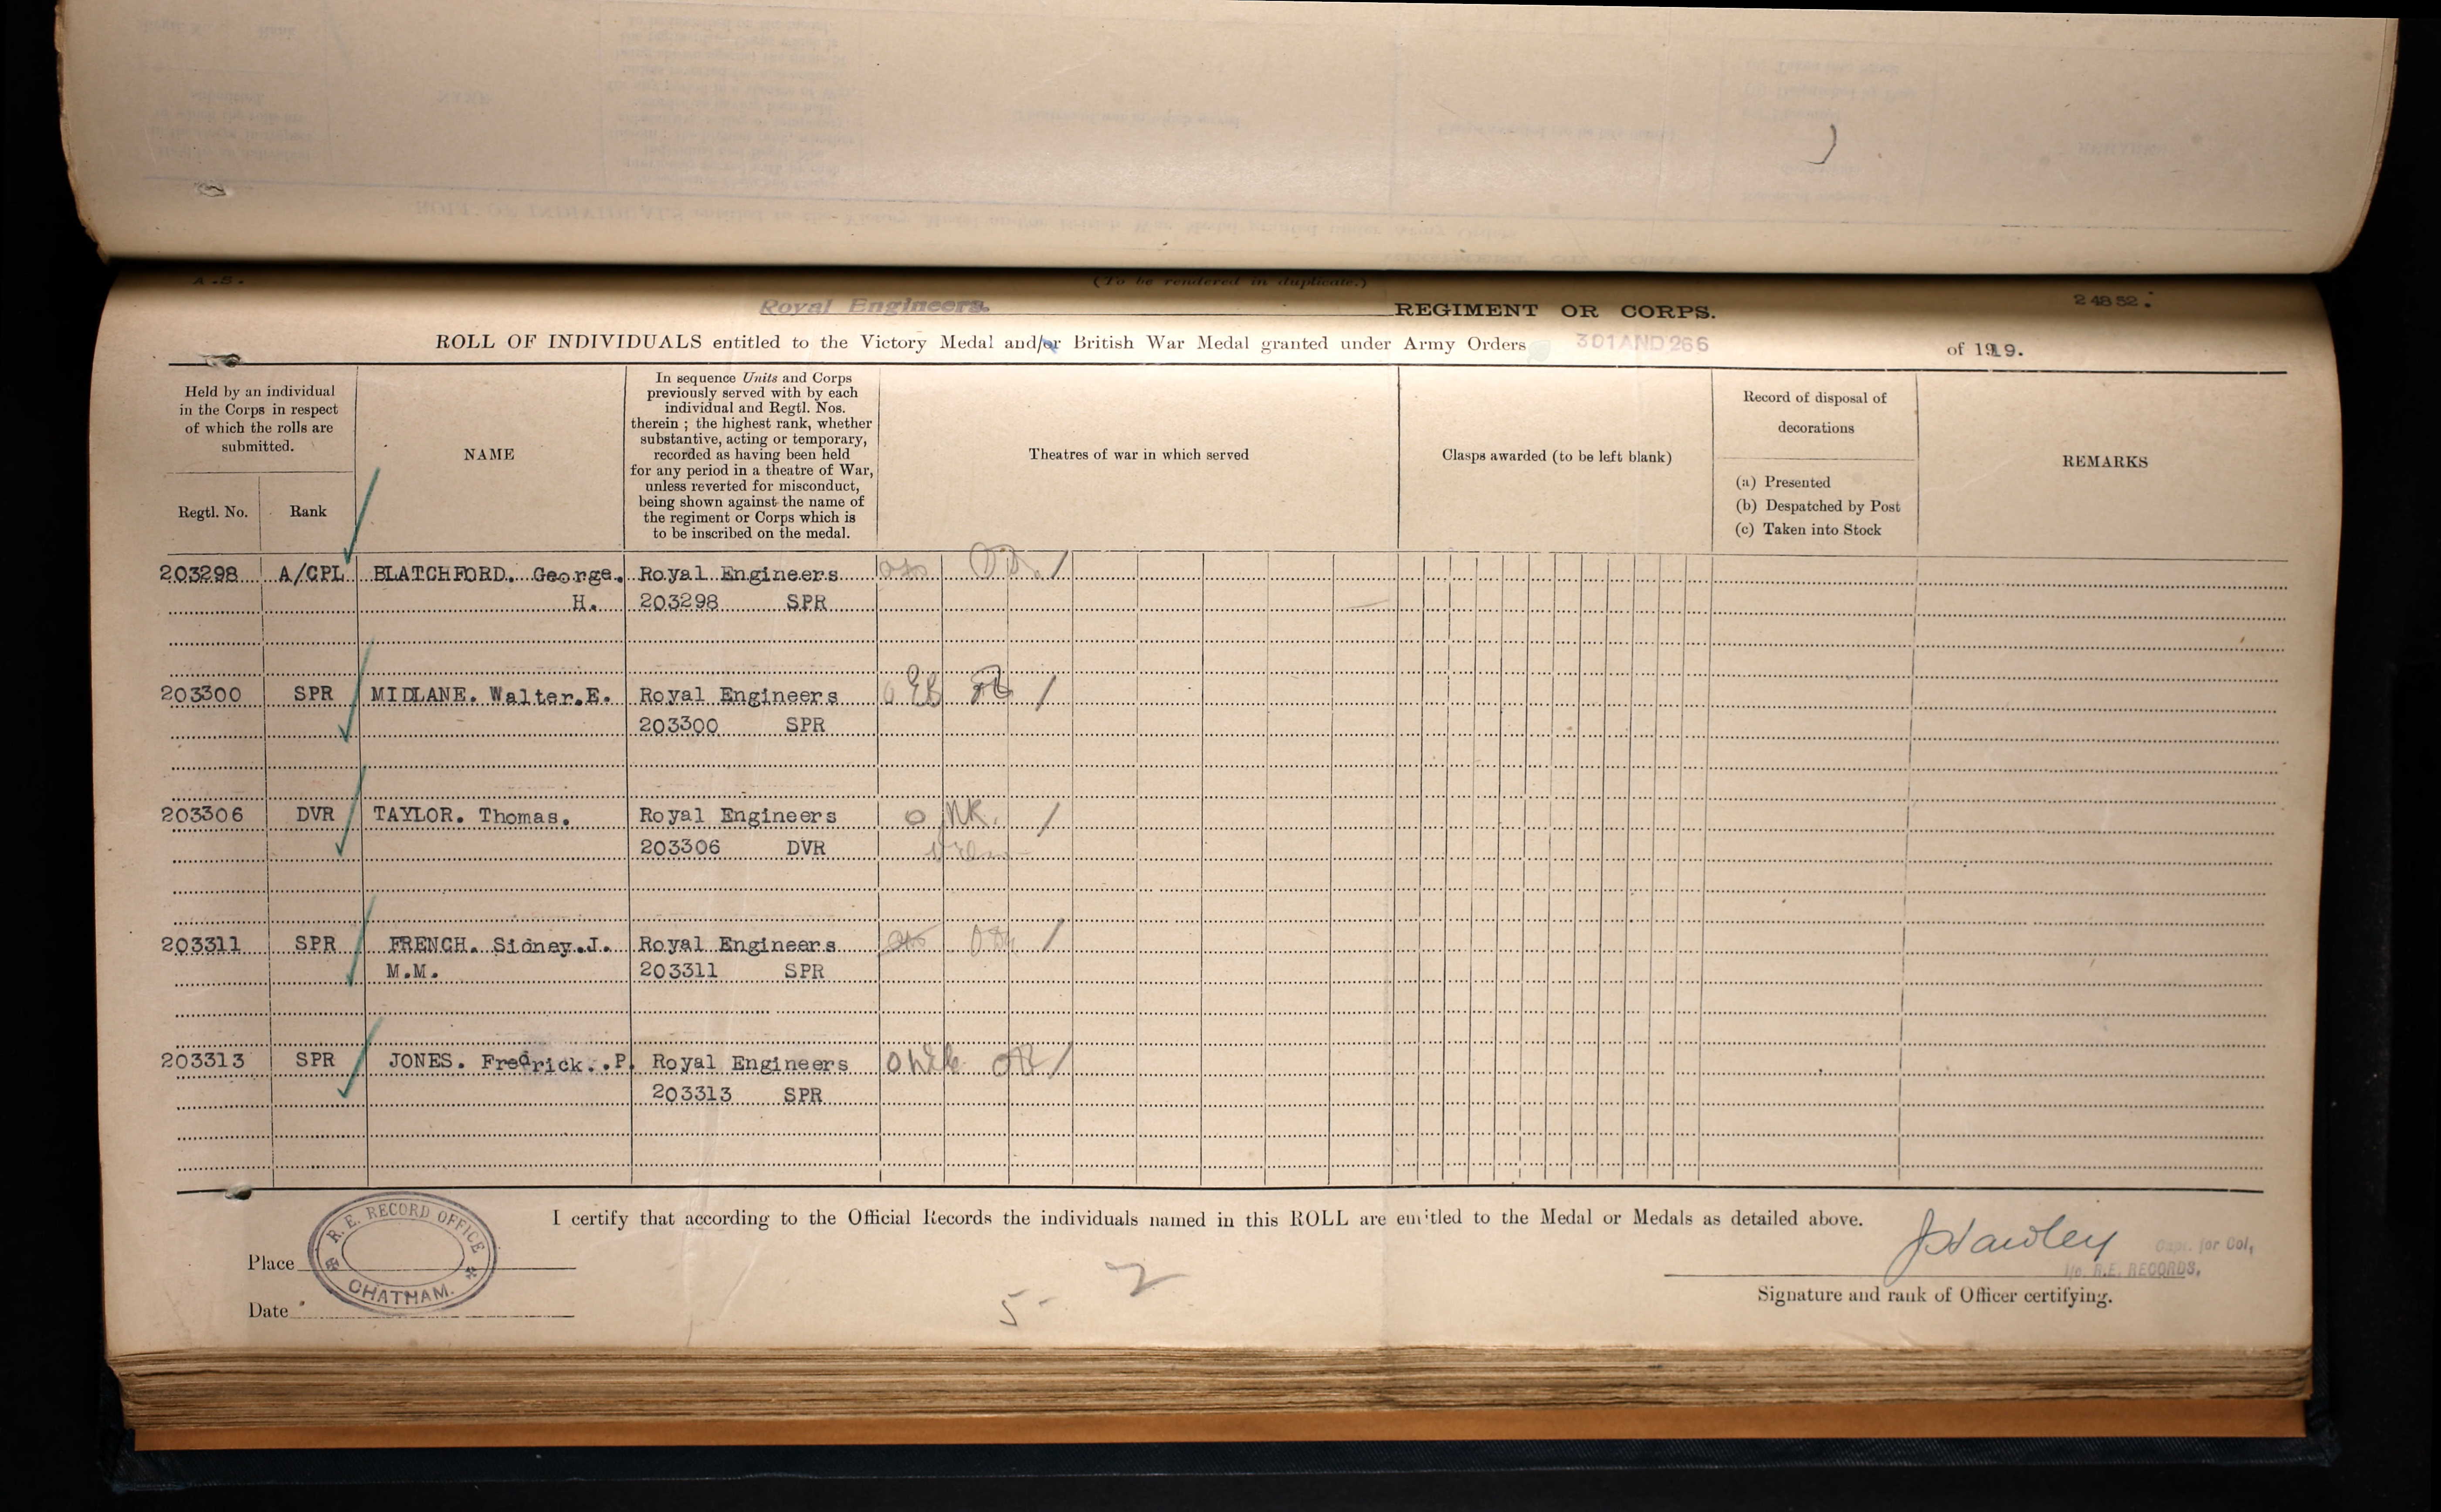 A.5.
(To be rendered in duplicate.)
Royal Engineers. REGIMENT OR CORPS.
24852.
ROLL OF INDIVIDUALS entitled to the Victory Medal and/or British War Medal granted under Army Orders 301AND266 of 1919.
Held by an individual
in the Corps in respect
of which the rolls are
submitted.
Regtl. No.
Rank
NAME
In sequence Units and Corps
previously served with by each
individual and Regtl. Nos.
therein ; the highest rank, whether
substantive, acting or temporary,
recorded as having been held
for any period in a theatre of War,
unless reverted for misconduct,
being shown against the name of
the regiment or Corps which is
to be inscribed on the medal.
Theatres of war in which served
Clasps awarded (to be left blank)
Record of disposal of
decorations
(a) Presented
(b) Despatched by Post
(c) Taken into Stock
REMARKS
203298 A/CPL BLATCHFORD. George. Royal Engineers
H. 203298 SPR
203300 SPR MIDLANE. Walter.E. Royal Engineers
203300 SPR
203306 DVR TAYLOR. Thomas. Royal Engineers
203306 DVR
203311 SPR FRENCH. Sidney.J. Royal Engineers
M.M. 203311 SPR
203313 SPR JONES. Fredrick..P. Royal Engineers
203313 SPR
I certify that according to the Official Records the individuals named in this ROLL are entitled to the Medal or Medals as detailed above.
R. E. RECORD OFFICE
CHATHAM.
Place
Date
5 - 2
Capt. for Col,
i/c. R.E. RECORDS.
Signature and rank of Officer certifying.